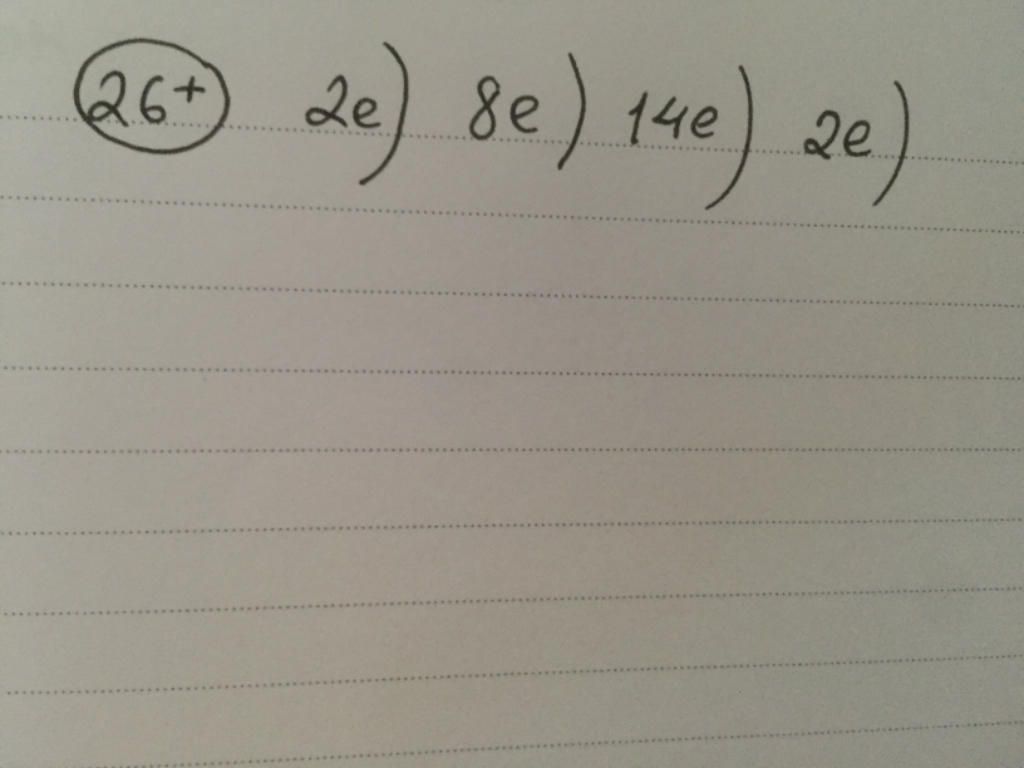 26+ 2e) 8e) 14e) 2e)